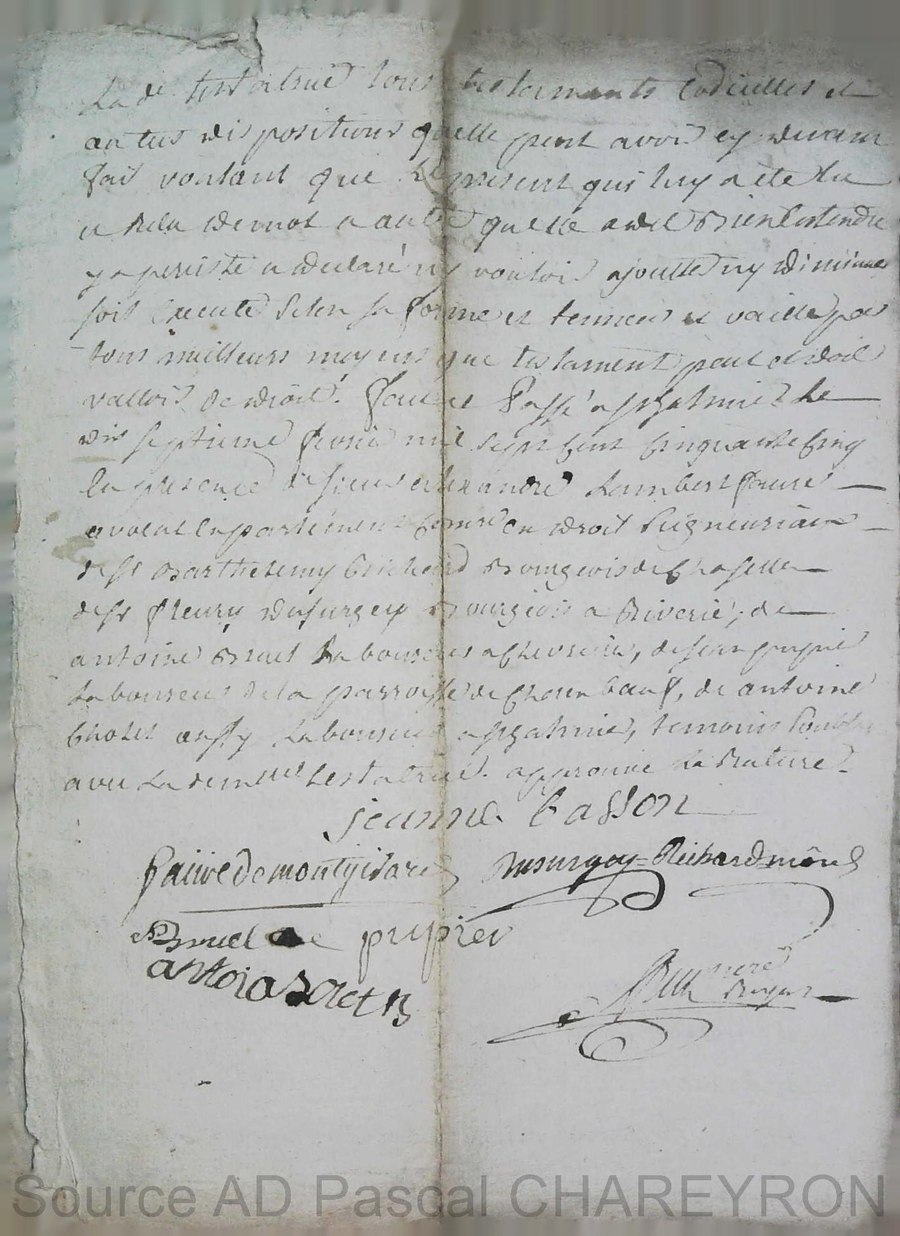 La de testatrice tous testaments Codicilles et
autres dispositions quelle peut avoir cy devant
fait voulant que le present qui luy a été lu
et Relu de mot a autre quelle a dit Bien Entendre
y a persisté a declaré ny vouloir ajoutter ny diminuer
soit Executé selon sa forme et teneur et vaille par
tous meilleurs moyens que testament peut et doit
valloir de droit. fait et Passé a le
dix septieme mil sept Cent Cinquante Cinq
En presence de sieur alexandre Lambert faure
avocat En parlement en droit
de sr Barthelemy Bourgeois de Chaselle
de sr fleury dusurgey Bourgeois a Riverie, de
antoine Laboureur a Chevrieres, de jean
Laboureur de la parroisse de, de antoine
aussy Laboureur a, temoins
avec La demlle testatrice. approuvé La Rature.
jeanne basson
faure de montgirard dusurgey Richard
antoi
Royal
Source AD Pascal CHAREYRON